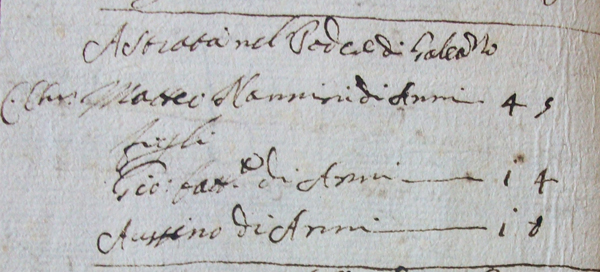 A Strata nel Podere di Galeazzo
C. Chr. Matteo Nannini di Anni 45
figli
Gio: Batt.a di Anni 14
Austino di Anni 10